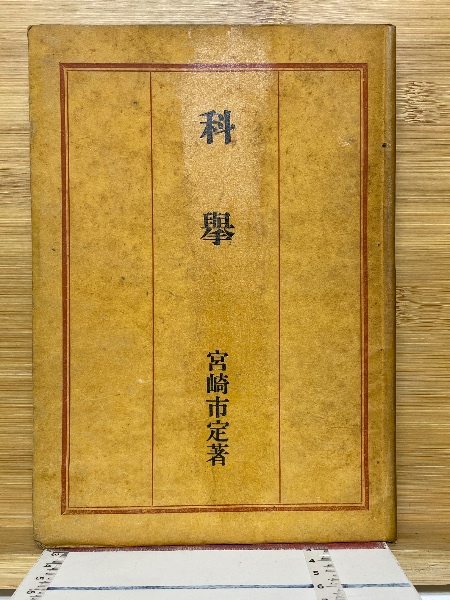 科舉
宮崎市定著